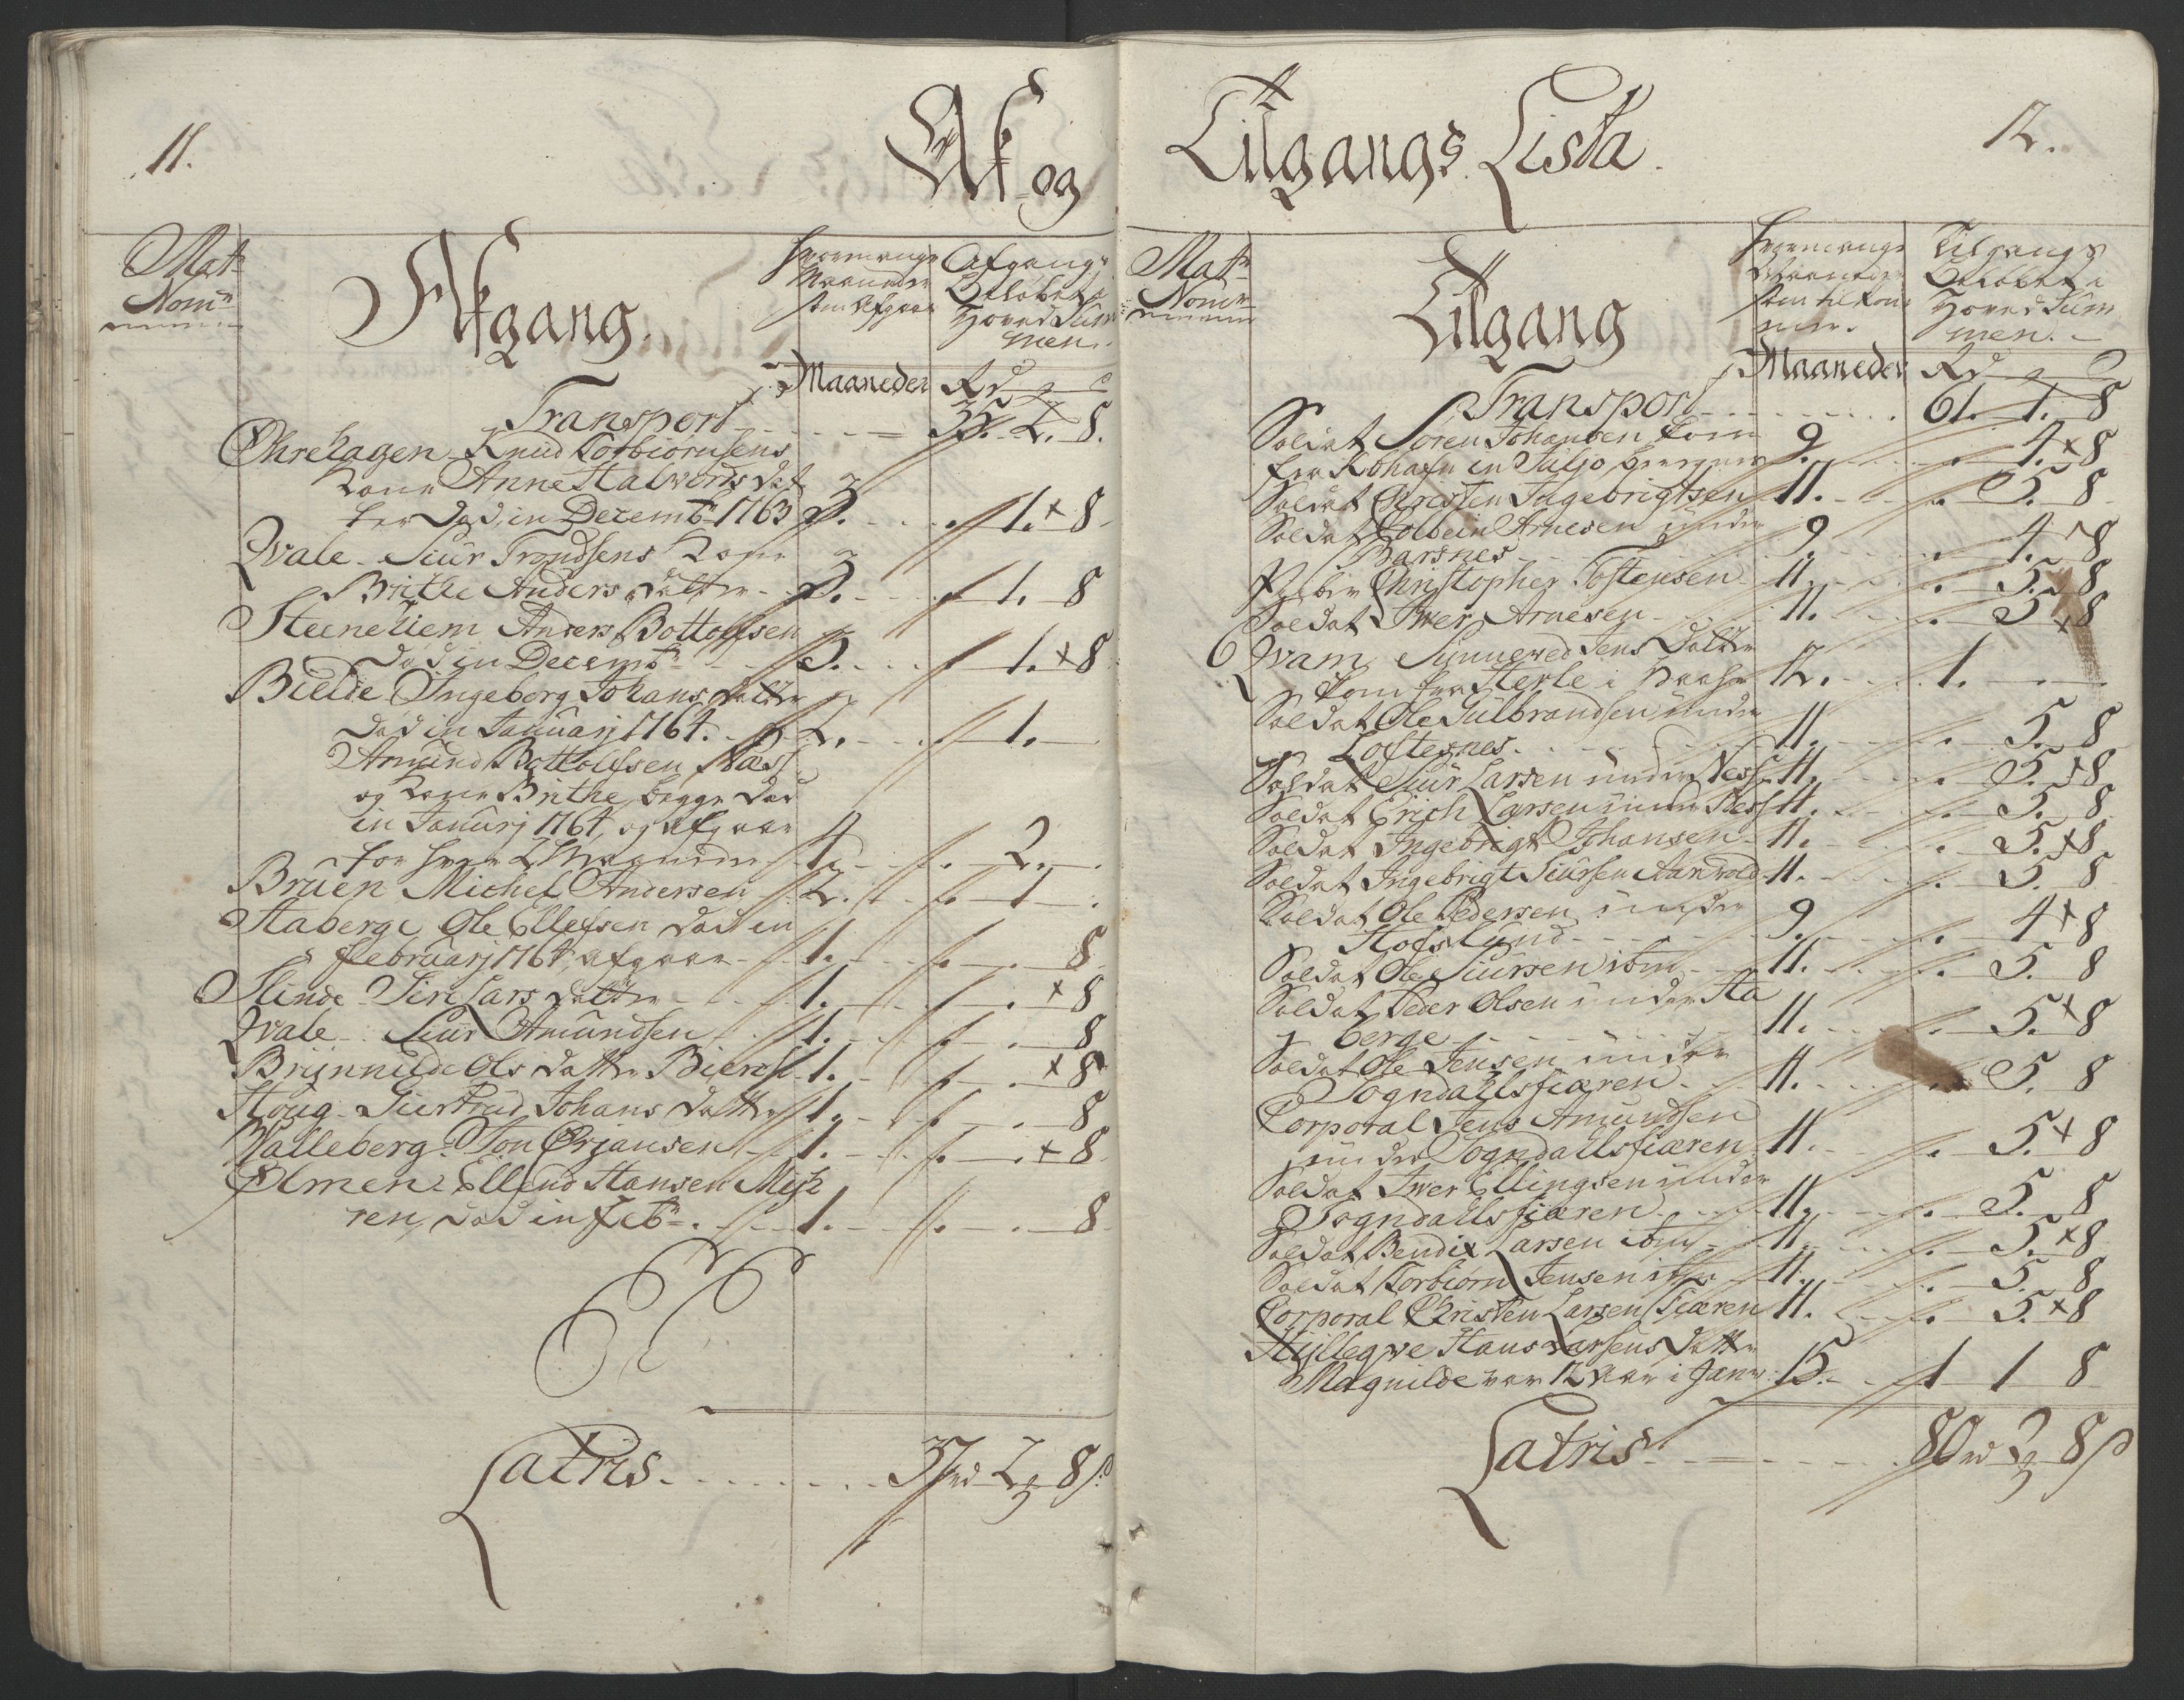 11.
Af og
Mat:
Nom:
Afgang.
Hvormange
Maaneder
som Afgaar
Afgangs
Beløbet i
Hoved Sum
men.
Maaneder
Rd
Transport 35. 2. 8.
Ohrehagen Knud Torbiørnsens
Kone Anne Halvords dat
ter Død in Decemb 1763 3. 1. 8
Qvale Siur Trondsens Kone
Brithe Anders datter 3. 1. 8
Steenehiem Anders Bottolfsen
død in Decemb 3. 1. 8
Bielde Ingeborg Johans datter
død in Januarj 1764. 2. 1.
Amund Bottolfsen Næss
og Kone Brithe, begge død
in Januarj 1764, og afgaar
for hver 2 Maaneder 4. 2.
Bruen Michel Andersen 2. 1.
Staberge Ole Ellefsen død in
Februarj 1764, afgaar 1. 8
Slinde Siri Lars datter 1. 8
Qvale Siur Amundsen 1. 8
Brynnilde Ols datter 1. 8
Houg Giertrud Johans datter 1. 8
Walleberg Jon Ørjansen 1. 8
Ølmen Ellend Hansen
ren, død in Feb 1. 8
Latris 37 rd 2 8 s
12.
Tilgangs Lista.
Mat
Nom
Tilgang
Hvormange
Maaneder
som tilkom
mer.
Tilgangs
Beløbet i
Hoved Sum
men.
Maaneder
Rd
Transport 61. 1. 8
Soldat Søren Johansen kom
fra Kbhafn in Juljo 9. 4. 8
Soldat Christen Ingebrigtsen 11. 5. 8
Soldat Kolbein Arnesen under
Barsnes 9. 4. 8
Christopher Tostensen 11. 5. 8
Soldat Iwer Arnesen 11. 5. 8
6 Qvam Sunneved Jens datter
kom fra Herle i 12. 1.
Soldat Ole Gulbrandsen under
Loftesnes 11. 5. 8
Soldat Siur Larsen under Ness 11. 5. 8
Soldat Erich Larsen under Ness 11. 5. 8
Soldat Ingebrigt Johansen 11. 5. 8
Soldat Ingebrigt Siursen Aarvold 11. 5. 8
Soldat Ole Pedersen under
Hofslund 9. 4. 8
Soldat Ole Siursen ibm 11. 5. 8
Soldat Peder Olsen under Sta
berge 11. 5. 8
Soldat Ole Jensen under
Sogndalsfiæren 11. 5. 8
Corporal Jens Amundsen
under Sogndalsfiæren 11. 5. 8
Soldat Iwer Ellingsen under
Sogndalsfiæren 11. 5. 8
Soldat Bendix Larsen ibm 11. 5. 8
Soldat Torbiørn Jensen ibm 11. 5. 8
Corporal Christen Larsen Fiæren 11. 5. 8
Hans Larsens datter
Magnilde var 12 Aar i Janv. 15. 1 1 8
Latris 80 rd 3 8 s